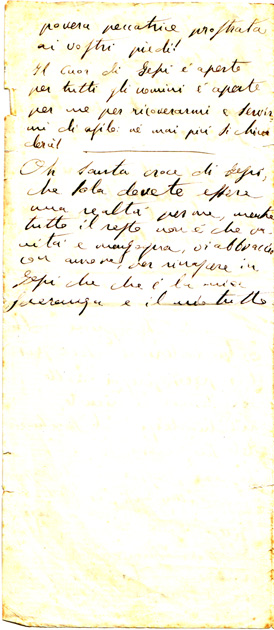 povera peccatrice prostrata
ai vostri piedi!
Il cuor di Gesù è aperto
per tutti gli uomini è aperto
per me per ricoverarmi e servir
mi di asilo: nè mai più si chiu
derà!
Oh santa croce di Gesù,
che sola dovete essere
una realtà per me, mentre
tutto il resto non è che va
nità e menzogna, vi abbraccio
con amore, per in
Gesù che è la mia
speranza e il mio tutto.